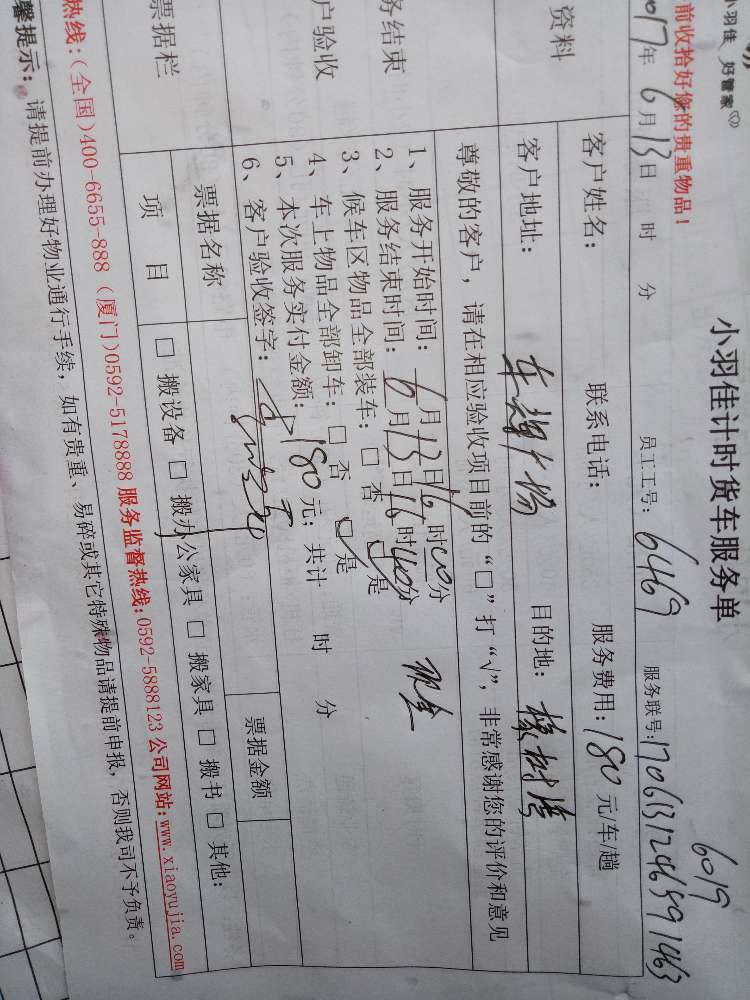 小羽佳 好管家
小羽佳计时货车服务单
6019
前收拾好您的贵重物品!
2017年 6月 13日 时 分 员工工号: 6469 服务联号:
资料
客户姓名: 联系电话: 服务费用: 180 元/车/趟
客户地址: 目的地: 橡树湾
尊敬的客户,请在相应验收项目前的“□”打“√”,非常感谢您的评价和意见
务结束
户验收
1、服务开始时间: 6月13日16时00分
2、服务结束时间: 6月13日16时40分 现金
3、候车区物品全部装车: □ 否 □ 是
4、车上物品全部卸车: □ 否 □ 是
5、本次服务实付金额: 180 元; 共计 时 分
6、客户验收签字:
票据栏
票据名称 票据金额
项 目 □ 搬设备 □ 搬办公家具 □ 搬家具 □ 搬书 □ 其他:
热线:(全国)400-6655-888 (厦门)0592-5178888 服务监督热线:0592-5888123 公司网站:www.xiaoyujia.com
馨提示: 请提前办理好物业通行手续,如有贵重、易碎或其它特殊物品请提前申报,否则我司不予负责。